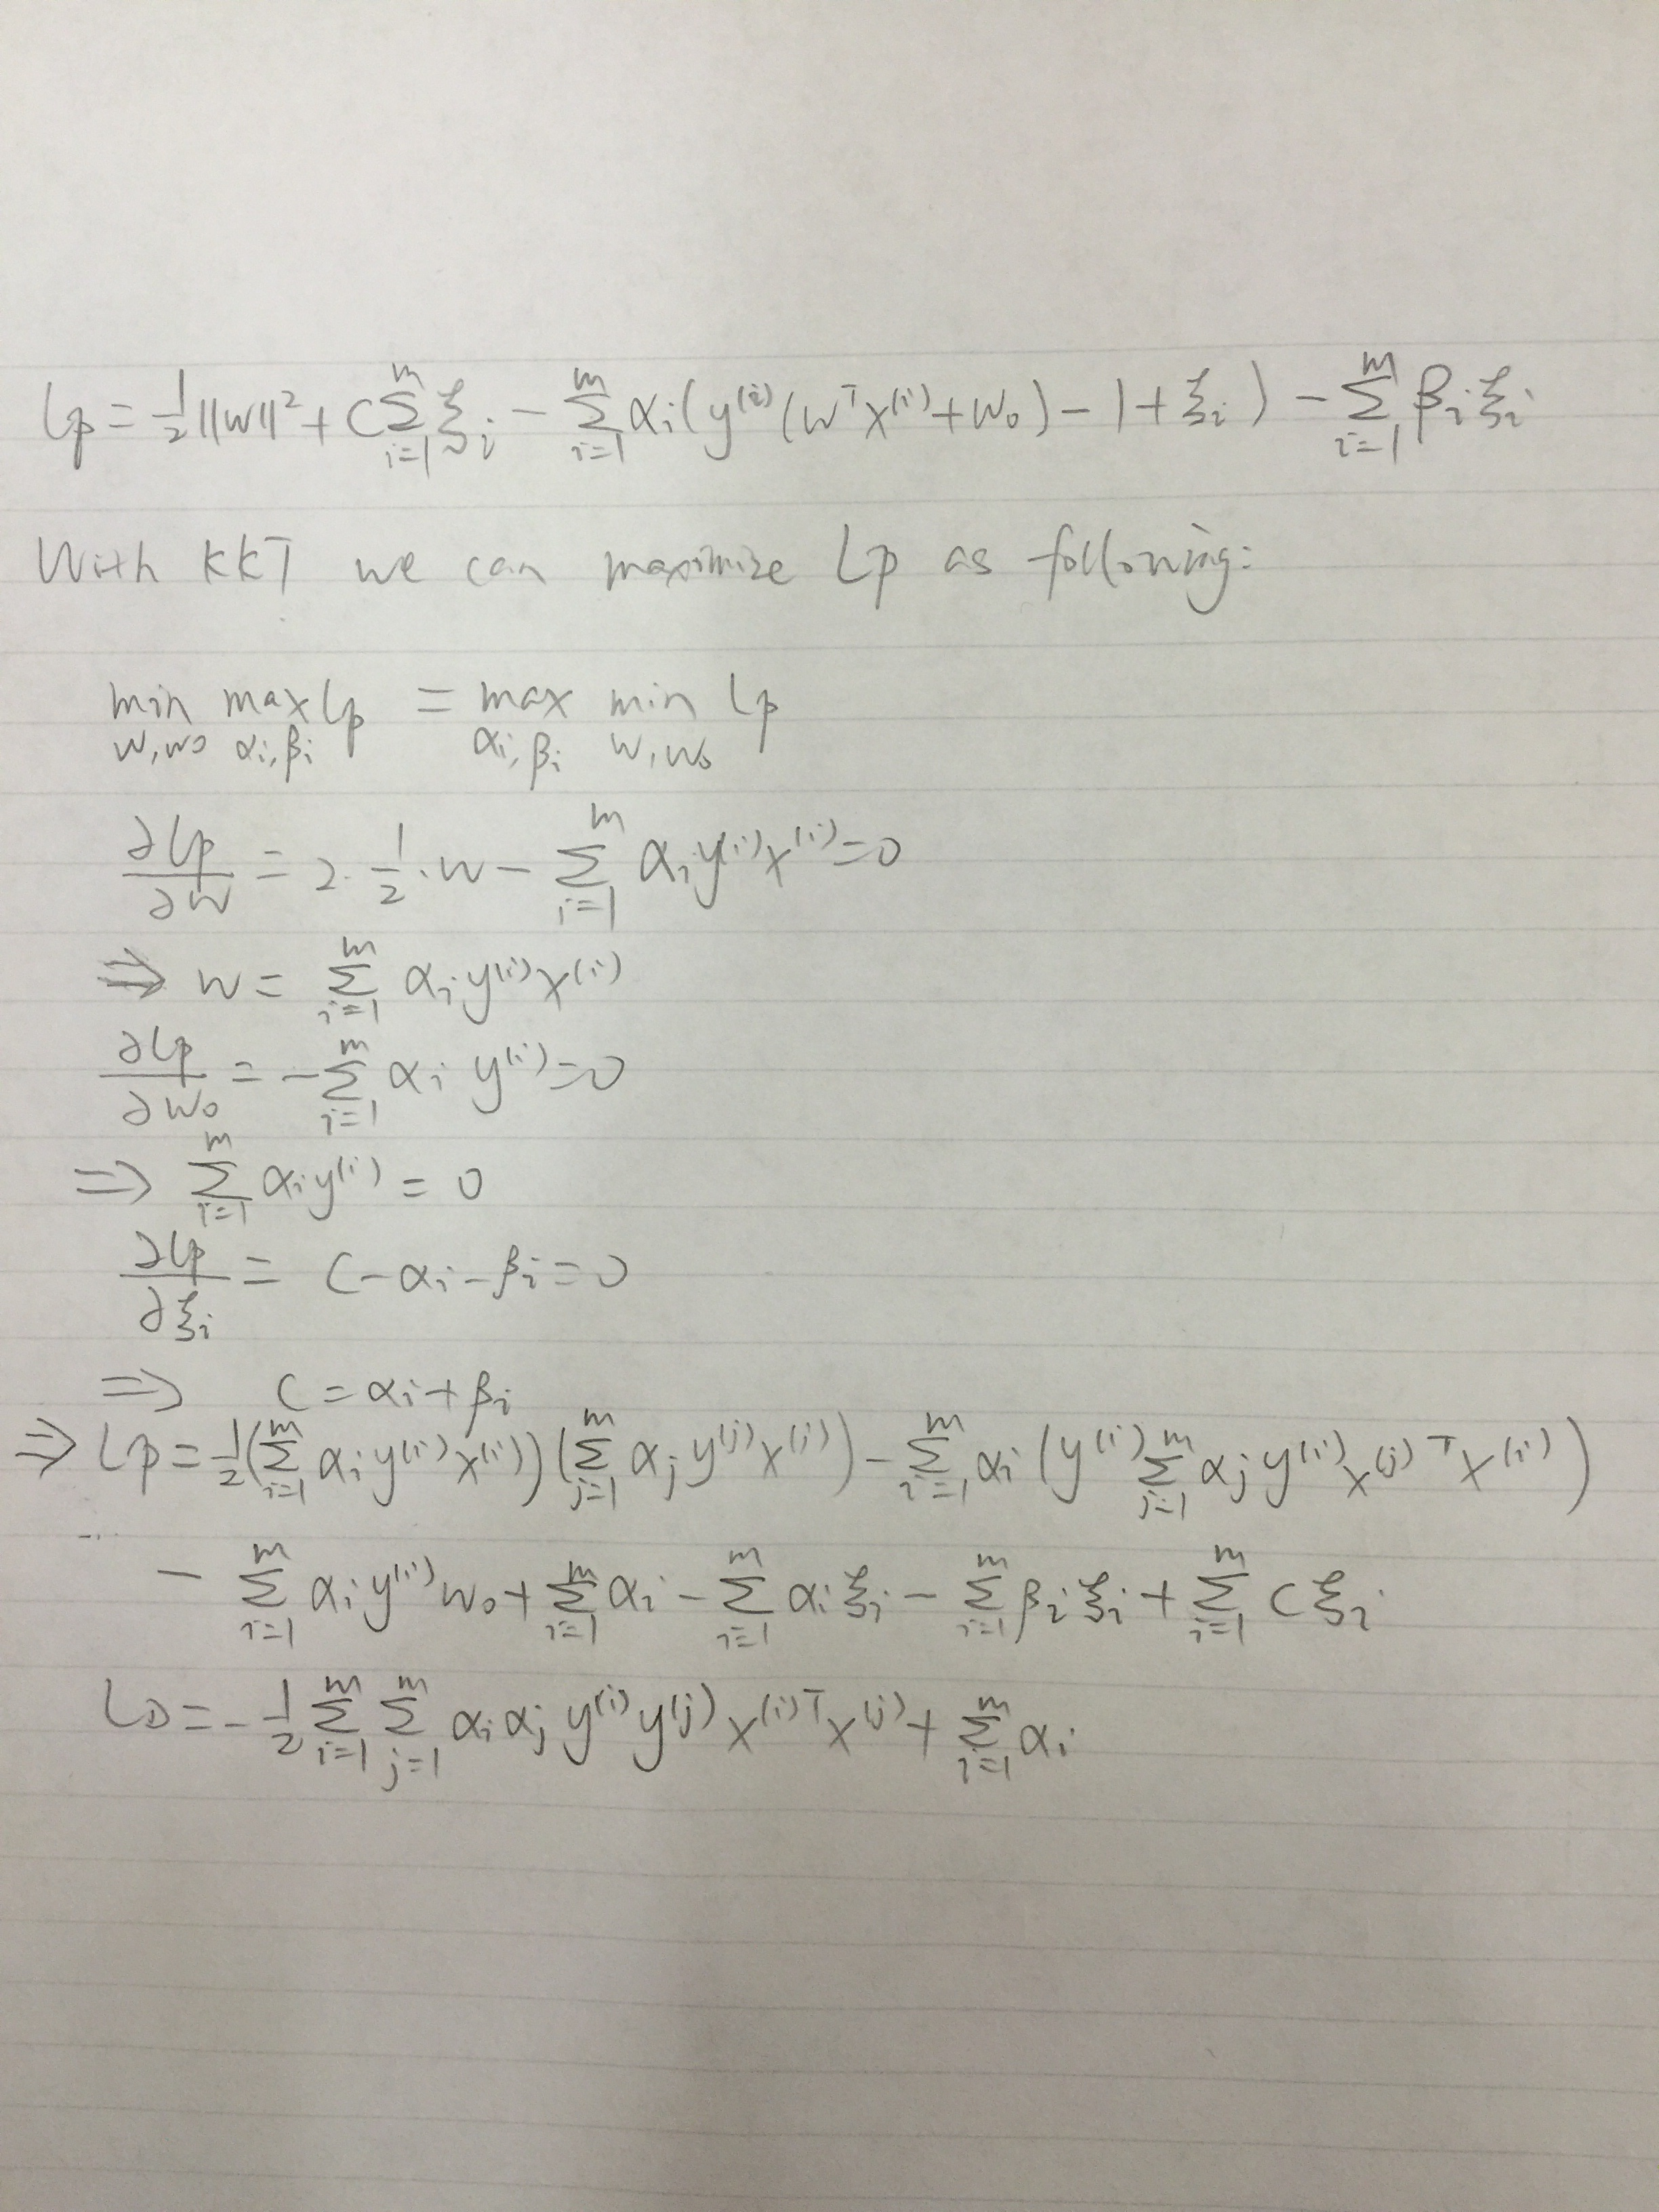 Lp = 1/2 ||w||² + C Σ_{i=1}^{m} ξ_i − Σ_{i=1}^{m} α_i ( y^{(i)} (w^T x^{(i)} + w_0) − 1 + ξ_i ) − Σ_{i=1}^{m} β_i ξ_i
With KKT we can maximize Lp as following:
min_{w,w0} max_{α_i,β_i} Lp = max_{α_i,β_i} min_{w,w_0} Lp
∂Lp/∂w = 2 · 1/2 · w − Σ_{i=1}^{m} α_i y^{(i)} x^{(i)} = 0
⇒ w = Σ_{i=1}^{m} α_i y^{(i)} x^{(i)}
∂Lp/∂w_0 = − Σ_{i=1}^{m} α_i y^{(i)} = 0
⇒ Σ_{i=1}^{m} α_i y^{(i)} = 0
∂Lp/∂ξ_i = C − α_i − β_i = 0
⇒ C = α_i + β_i
⇒ Lp = 1/2 ( Σ_{i=1}^{m} α_i y^{(i)} x^{(i)} ) ( Σ_{j=1}^{m} α_j y^{(j)} x^{(j)} ) − Σ_{i=1}^{m} α_i ( y^{(i)} Σ_{j=1}^{m} α_j y^{(i)} x^{(j)T} x^{(i)} )
− Σ_{i=1}^{m} α_i y^{(i)} w_0 + Σ_{i=1}^{m} α_i − Σ_{i=1}^{m} α_i ξ_i − Σ_{i=1}^{m} β_i ξ_i + Σ_{i=1}^{m} C ξ_i
L_D = − 1/2 Σ_{i=1}^{m} Σ_{j=1}^{m} α_i α_j y^{(i)} y^{(j)} x^{(i)T} x^{(j)} + Σ_{i=1}^{m} α_i